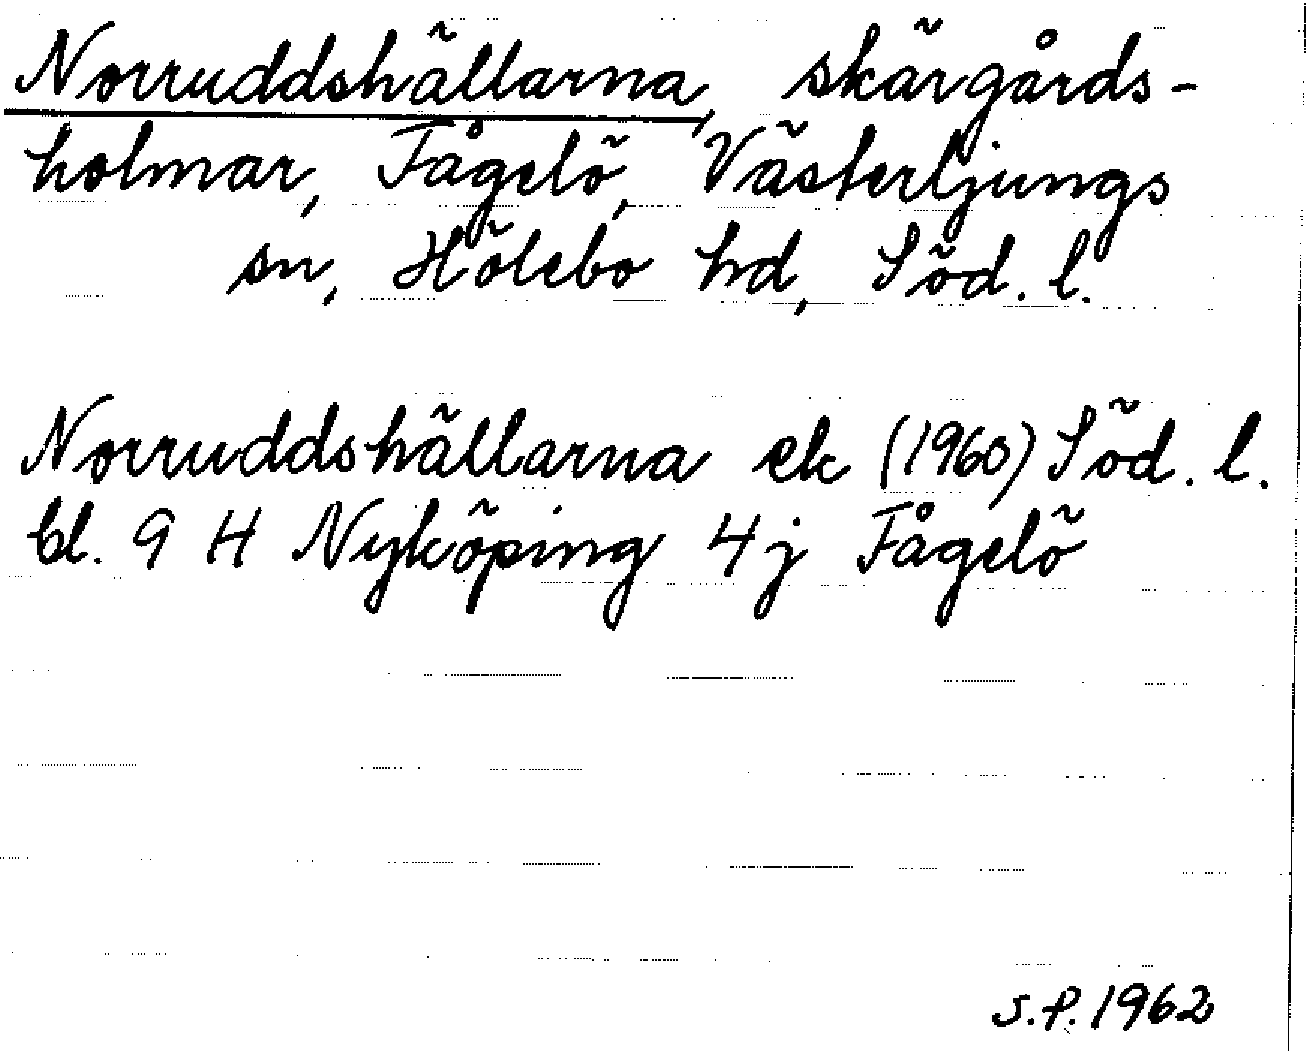 Norruddshällarna, skärgårds-
holmar, Fågelö, Västerljungs
sn, Hölebo hd, Söd. l.
Norruddshällarna ek (1960) Söd. l.
bl. 9 H Nyköping 4j Fågelö
S.P. 1962